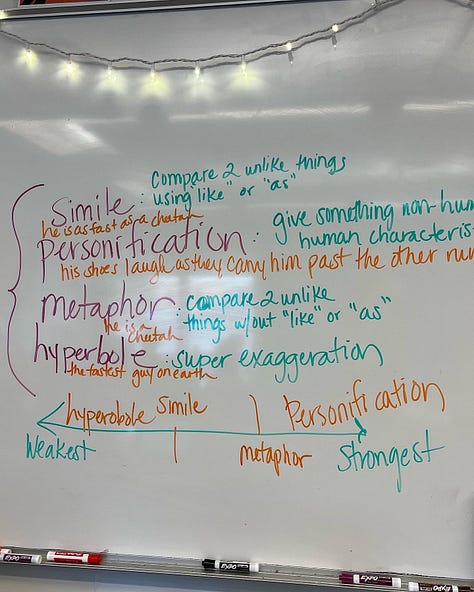 Simile: Compare 2 unlike things
using "like" or "as"
he is as fast as a cheetah
personification: give something non-hum
human characteris
his shoes laugh as they carry him past the other run
metaphor: compare 2 unlike
things w/out "like" or "as"
he is a cheetah
hyperbole: super exaggeration
the fastest guy on earth
hyperobole simile Personification
Weakest metaphor Strongest
EXPO
EXPO
EXPO
EXPO
EXPO